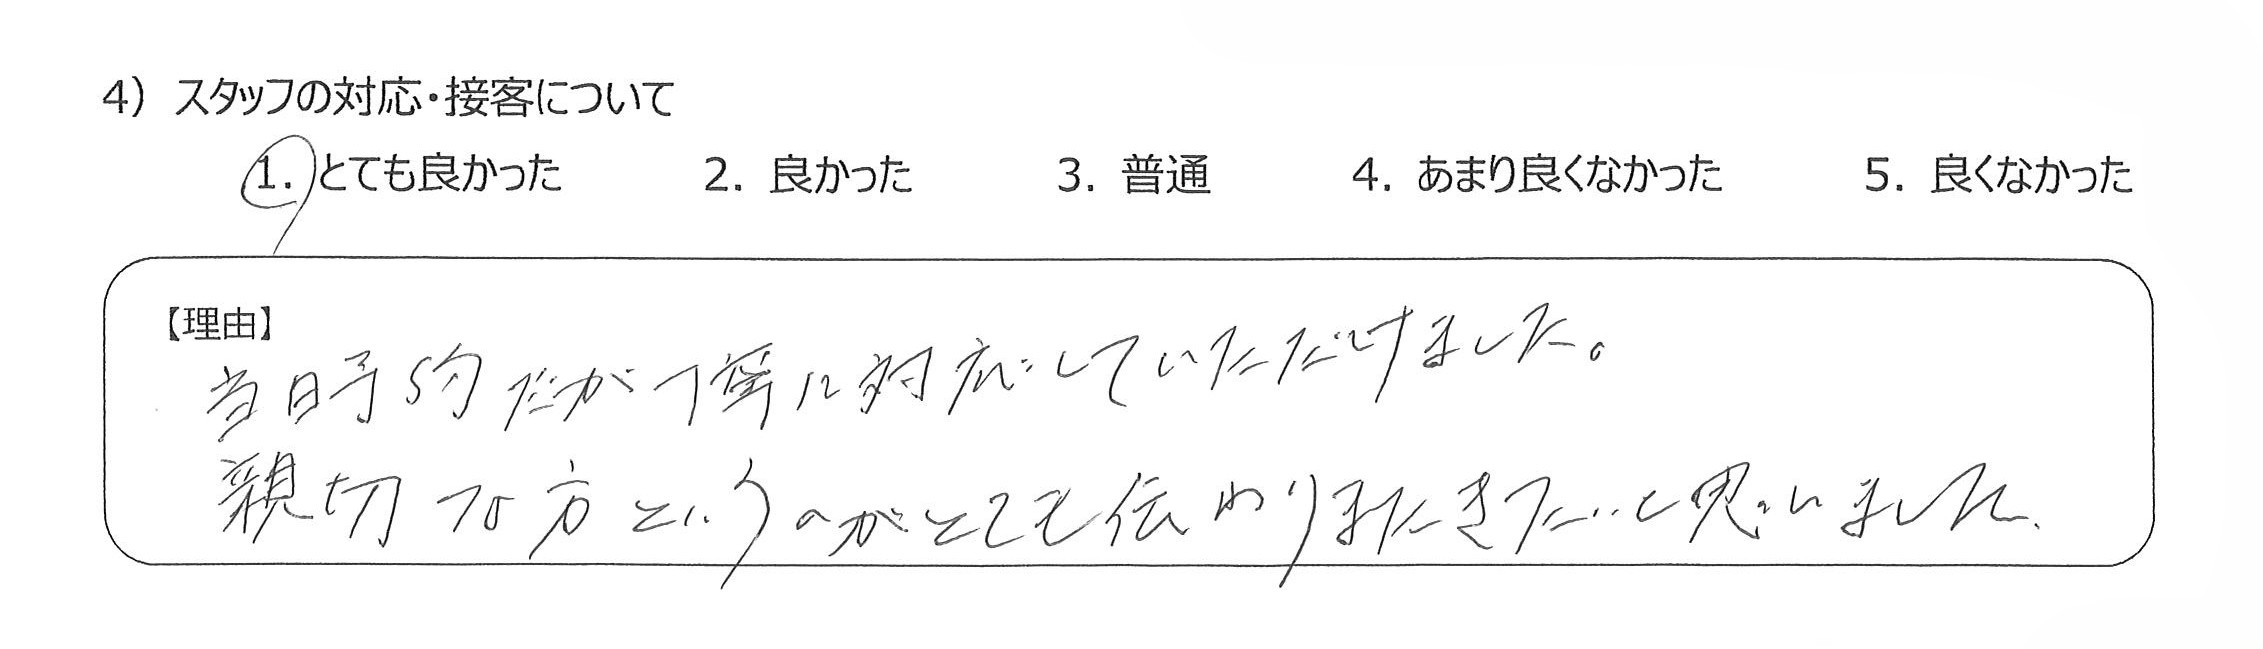 4) スタッフの対応・接客について
1. とても良かった 2. 良かった 3. 普通 4. あまり良くなかった 5. 良くなかった
【理由】
当日予約だが丁寧に対応していただけました。
親切な方というのがとても伝わりまたきたいと思いました。